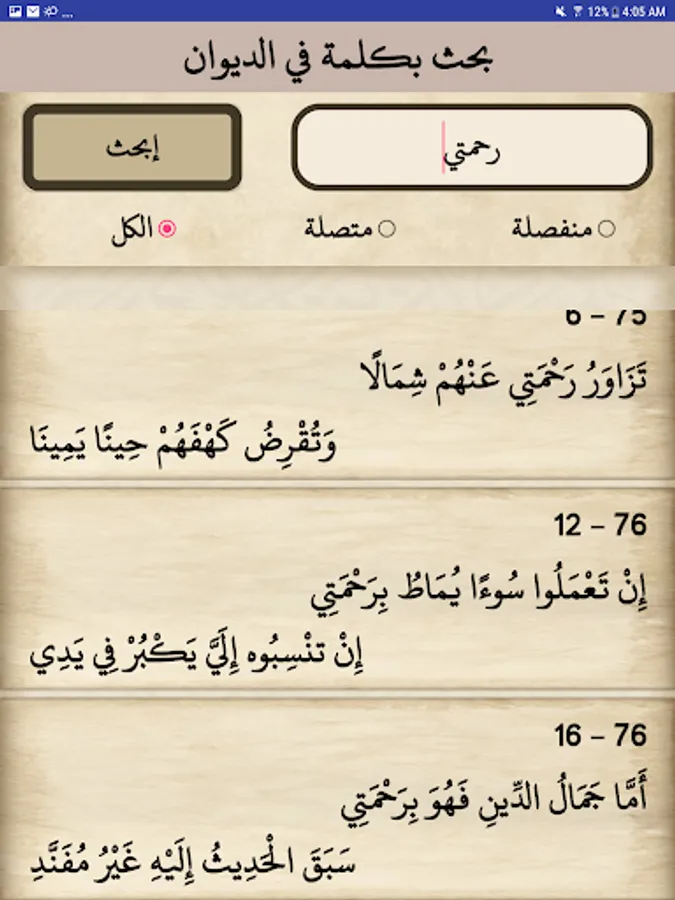 ... 12% 4:05 AM
بحث بكلمة في الديوان
رحمتي
إبحث
منفصلة
متصلة
الكل
6 – 75
تَزَاوَرُ رَحْمَتِي عَنْهُمْ شِمَالًا
وَتُقْرِضُ كَهْفَهُمْ حِينًا يَمِينَا
12 – 76
إِنْ تَعْمَلُوا سُوءًا يُمَاطُ بِرَحْمَتِي
إِنْ تنْسِبُوه إِلَيَّ يَكْبُرْ فِي يَدِي
16 – 76
أَمَّا جَمَالُ الدِّينِ فَهُوَ بِرَحْمَتِي
سَبَقَ الْحَدِيثُ إِلَيْهِ غَيْرُ مُفَنَّدِ